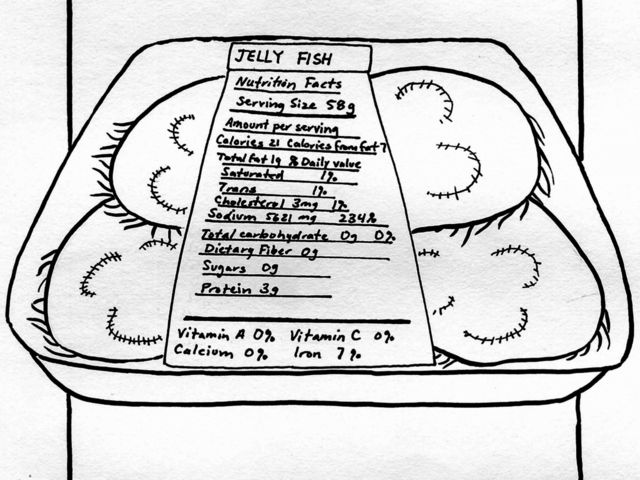 JELLY FISH
Nutrition Facts
Serving Size 58g
Amount per serving
Calories 21 Calories from fat 7
Total fat 1g % Daily value
Saturated 1%
Trans 1%
Cholesterol 3mg 1%
Sodium 5621 mg 234%
Total carbohydrate 0g 0%
Dietary Fiber 0g
Sugars 0g
Protein 3g
Vitamin A 0% Vitamin C 0%
Calcium 0% Iron 7%